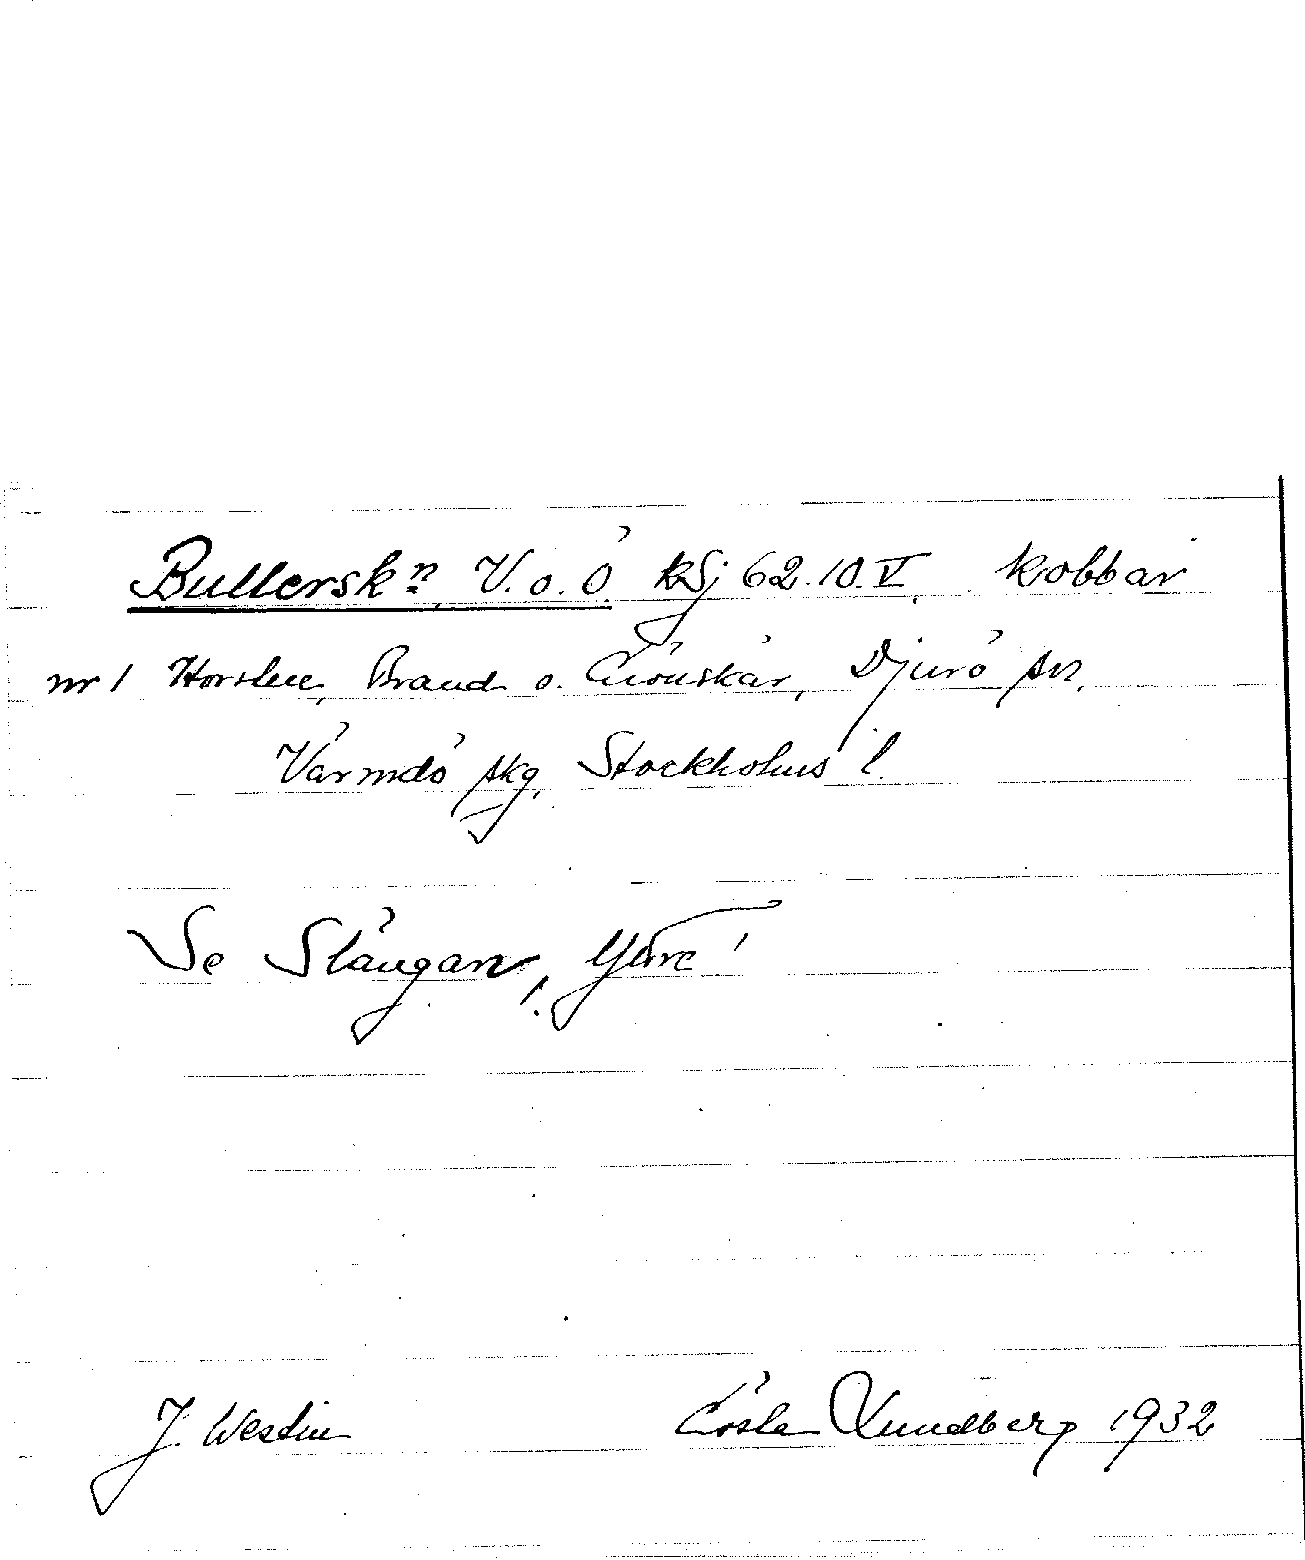 Bullerskn V. o. Ö. KSj 62.10.V. Kobbar
nr 1 Horsten, Brand o. Grönskär, Djurö sn,
Värmdö skg, Stockholms l.
Se Stångan, Yttre!
J. Westin Gösta Lundberg 1932